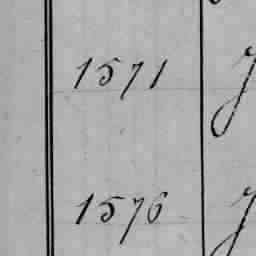 1571
1576